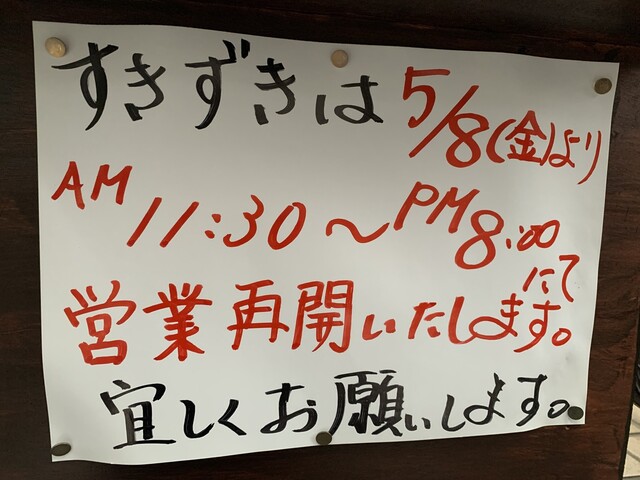 すきずきは5/8(金)より
AM11:30〜PM8:00
にて
営業再開いたします。
宜しくお願いします。